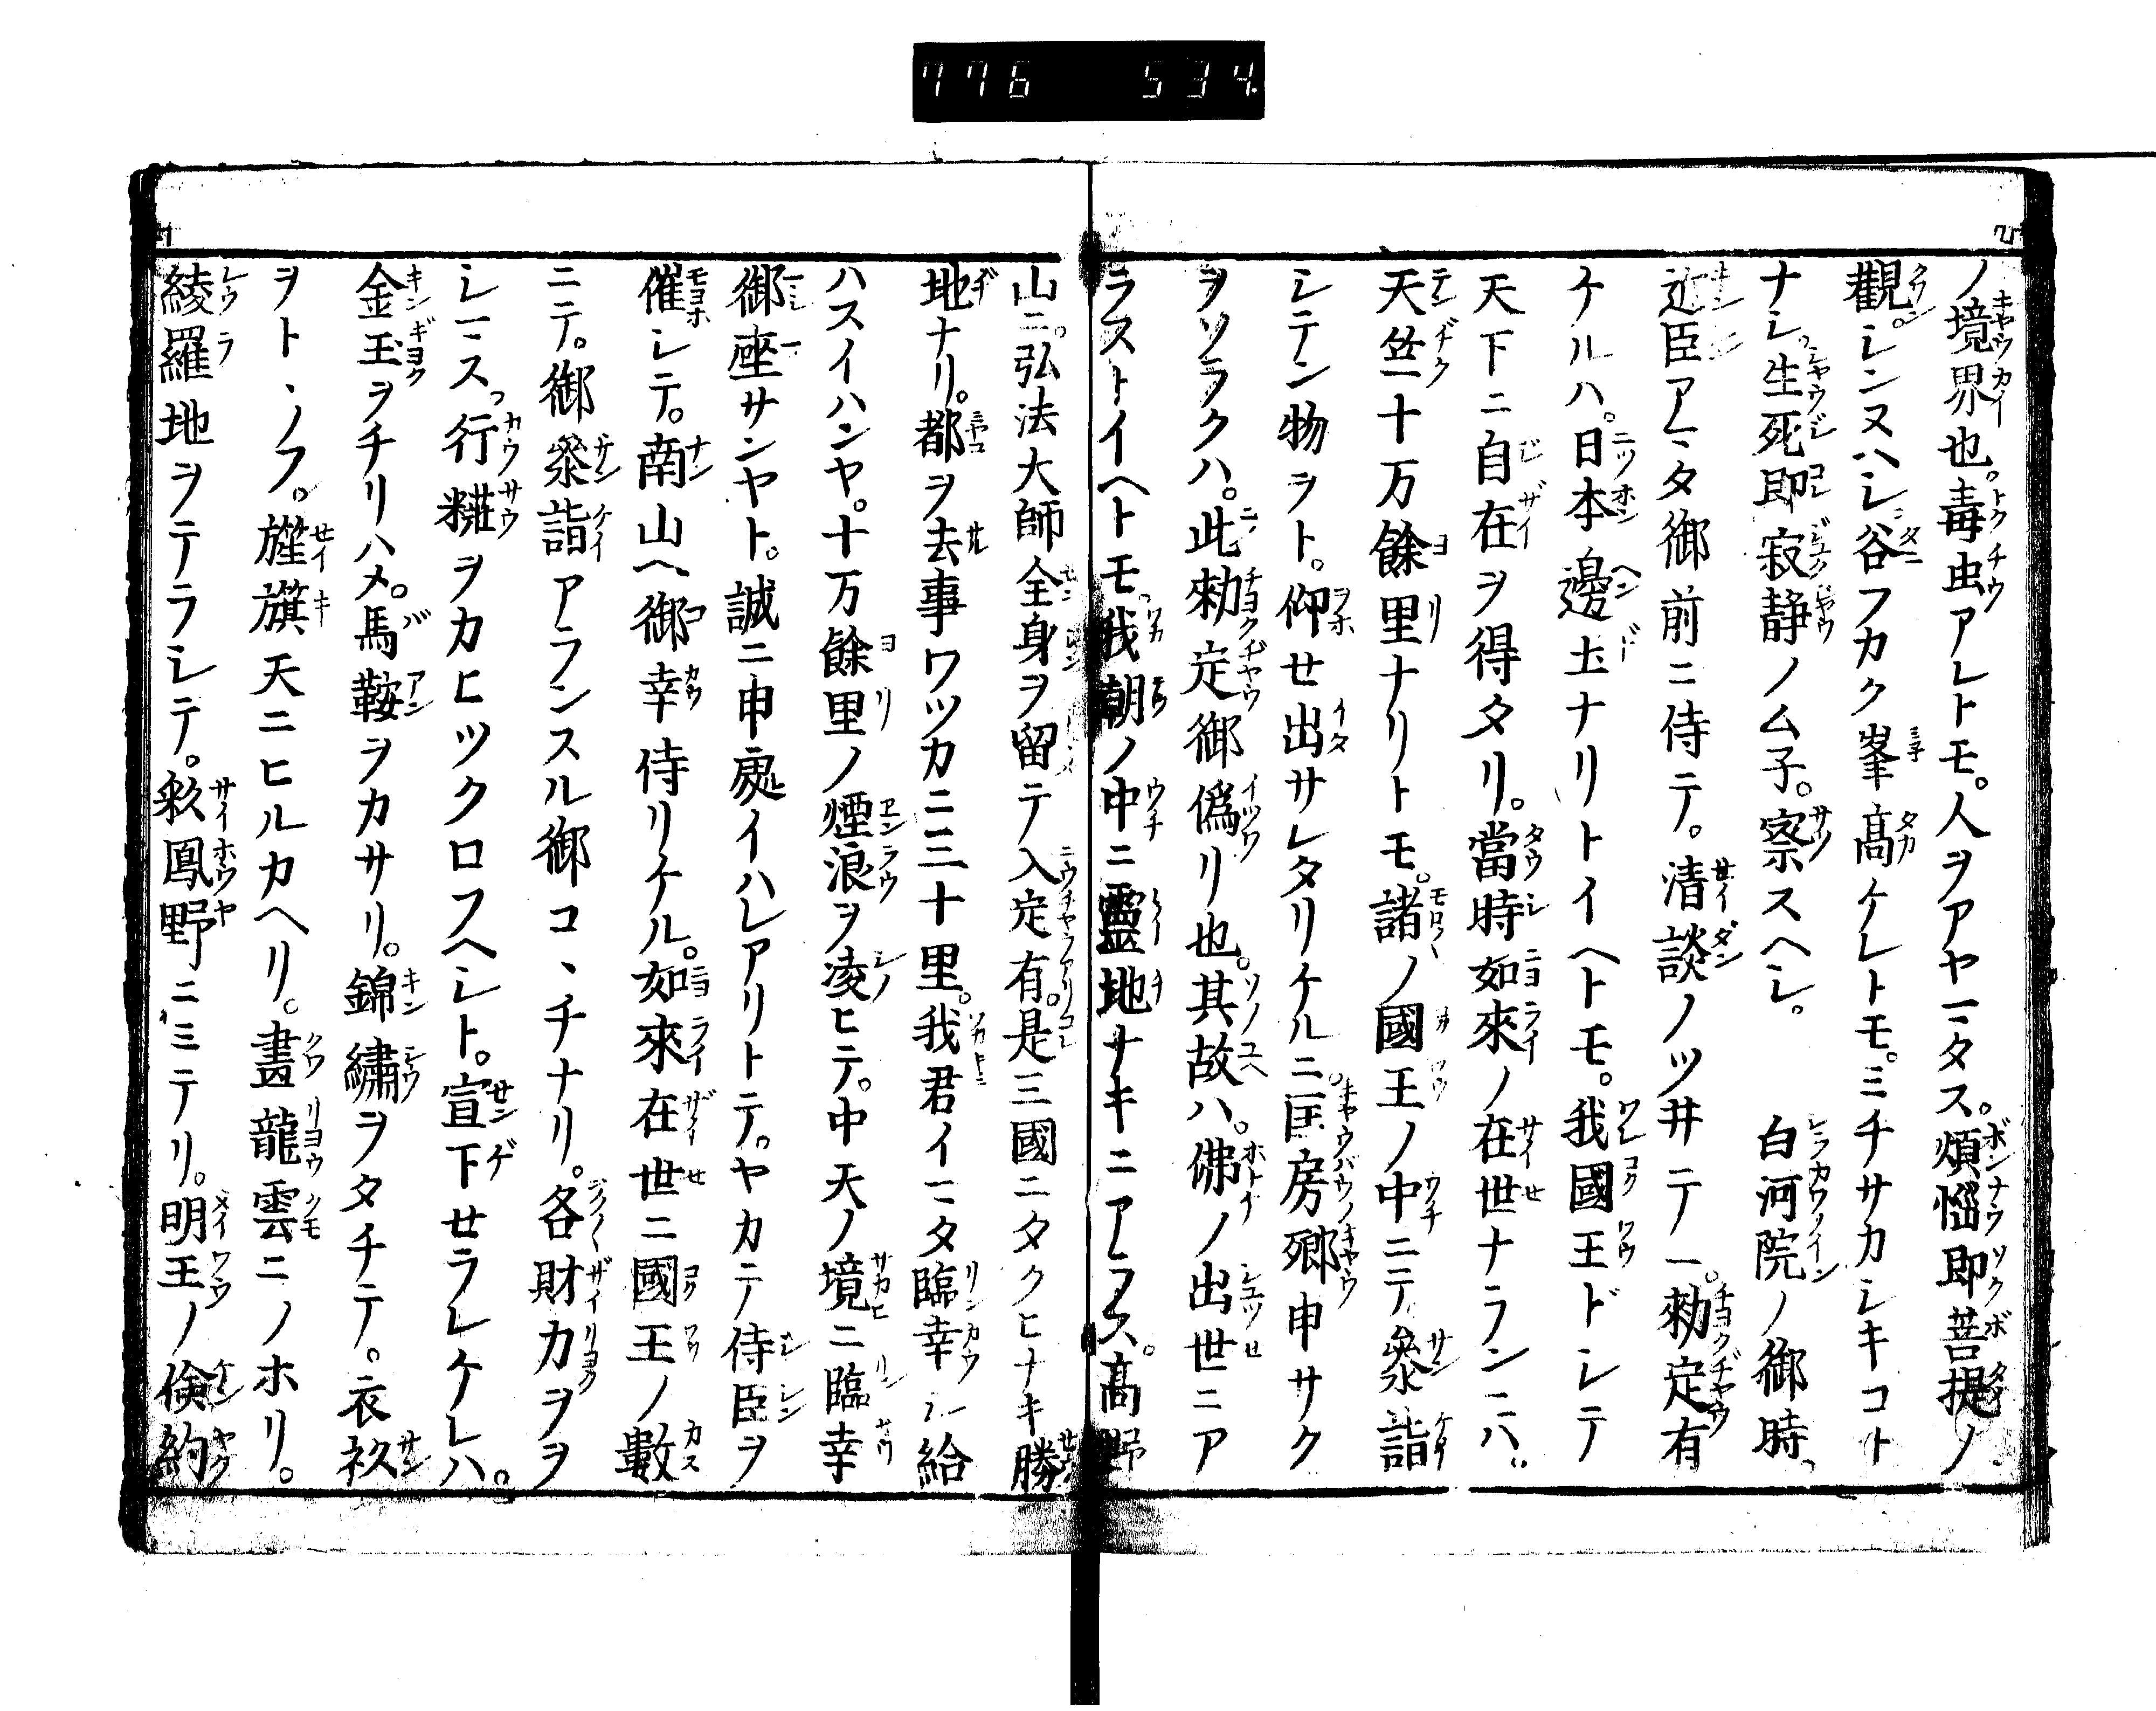 776 534
ノ境界也。毒虫アレトモ。人ヲアヤマタス。煩惱即菩提ノ
觀シンヌヘシ。谷フカク峯髙ケレトモ。ミチサカシキコト
ナシ。生死即寂静ノム子。察スヘシ。 白河院ノ御時。
近臣アマタ御前ニ侍テ。清談ノツ井テニ。勅定有
ケルハ。日本邊土ナリトイヘトモ。我國王トシテ
天下ニ自在ヲ得タリ。當時如來ノ在世ナランニハ。
天竺十万餘里ナリトモ。諸ノ國王ノ中ニテ。參詣
シテン物ヲト。仰せ出サレタリケルニ。匡房郷申サク
ヲソラクハ。此勅定御僞リ也。其故ハ。佛ノ出世ニア
ラストイヘトモ。我朝ノ中ニ靈地サキニアラス。髙野
山ニ。弘法大師全身ヲ留テ入定有。是三國ニタクヒナキ勝
地ナリ。都ヲ去事ワツカニ三十里。我君イマタ臨幸シ給
ハスイハンヤ。十万餘里ノ煙浪ヲ凌ヒテ。中天ノ境ニ臨幸
御座サンヤト。誠ニ申處イハレアリトテ。ヤカテ侍臣ヲ
催シテ。南山ヘ御幸侍リケル。如來在世ニ國王ノ數
ニテ。御參詣アランスル御コヽチナリ。各財力ヲヲ
シマス。行糚ヲカヒツクロフヘシト。宣下せラレケレハ。
金玉ヲチリハメ。馬鞍ヲカサリ。錦繡ヲタチテ。衣衫
ヲトヽノフ。旌旗天ニヒルカヘリ。畫龍雲ニノホリ。
綾羅地ヲテラシテ。綵鳳野ニミテリ。明王ノ儉約